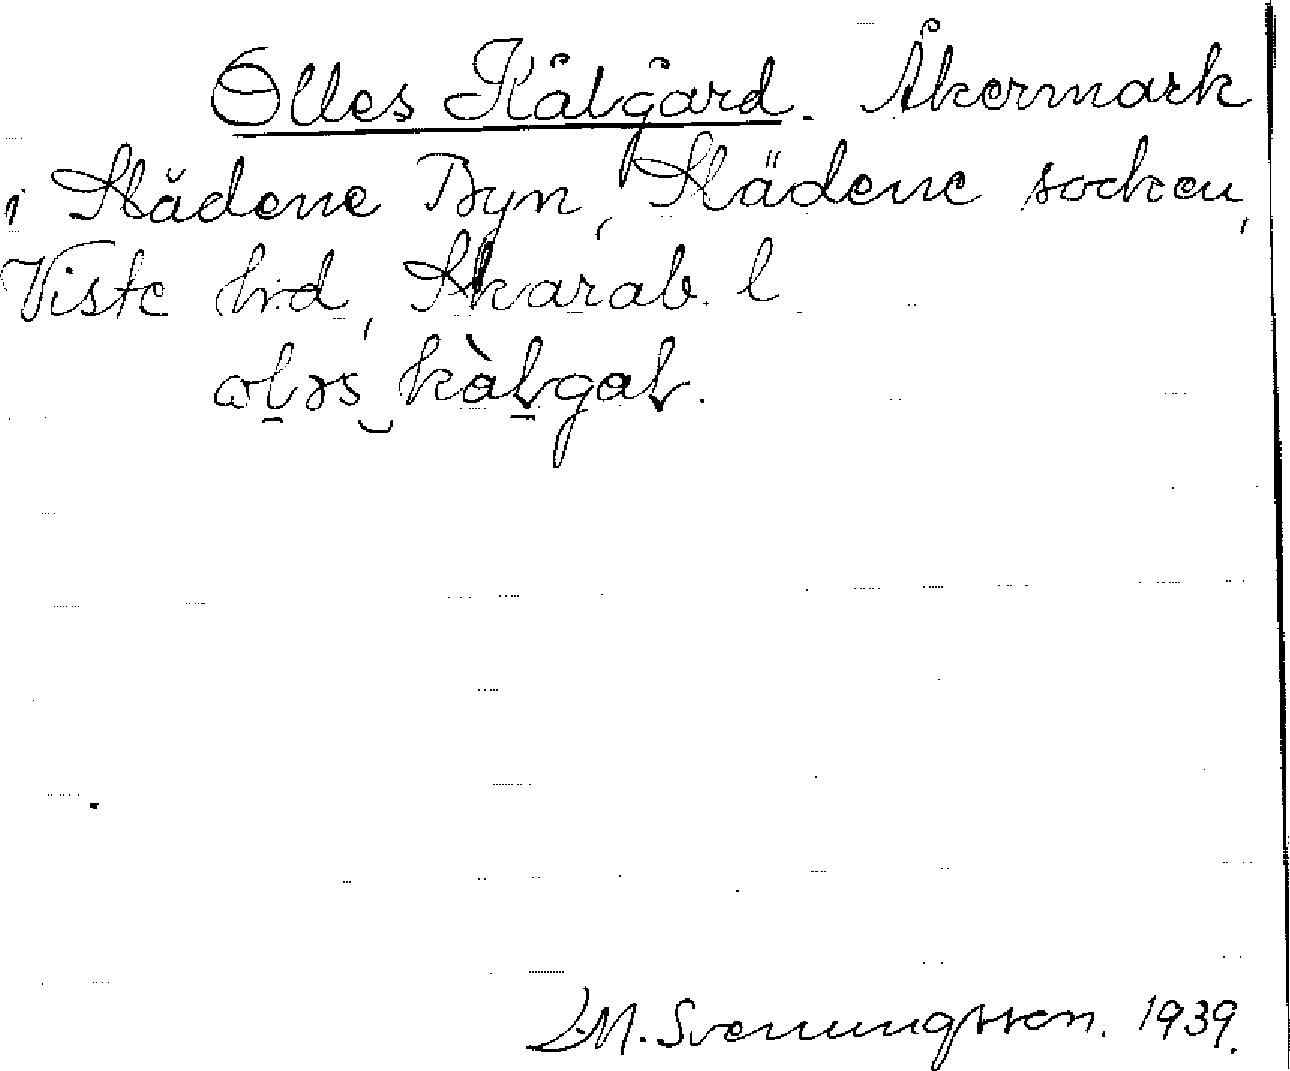 Olles Kålgård. Åkermark
i Slädene Byn, Slädene socken,
Viste hrd, Skarab. l
ɷl̠əs͜ kàł̠gał.
L.M. Svenungsson. 1939.